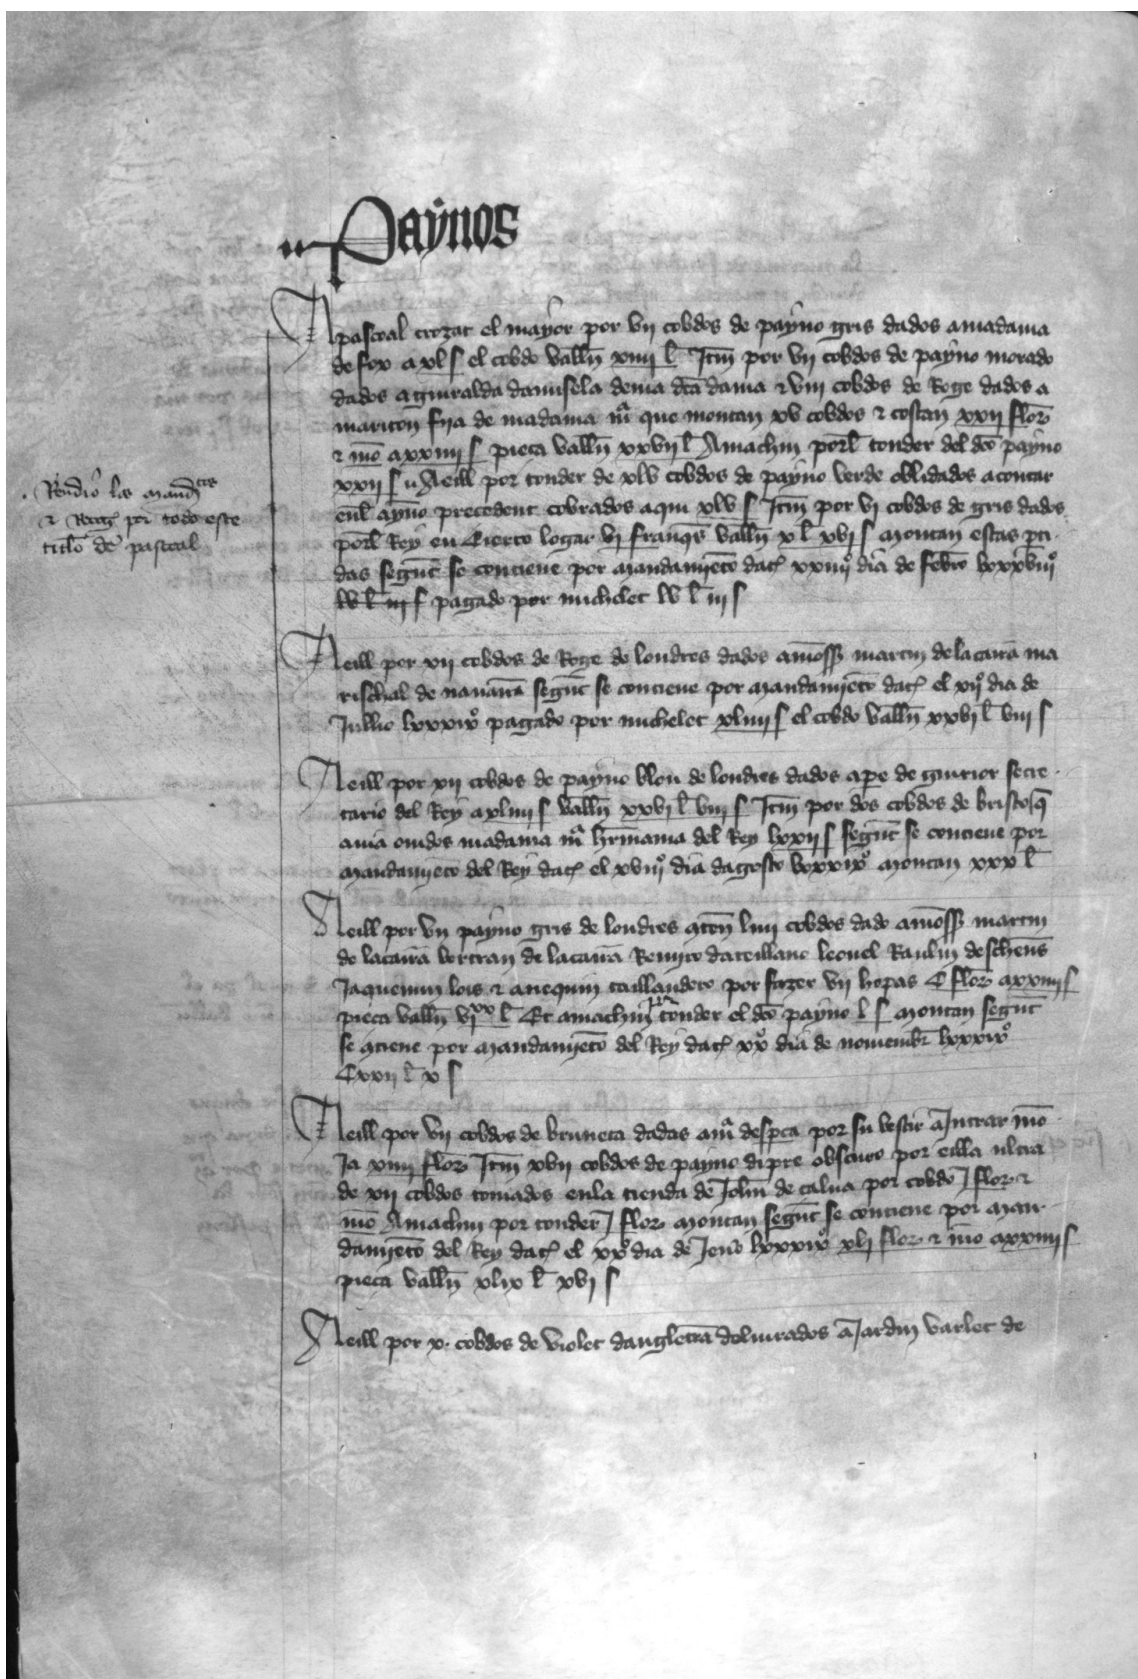 Paynos
A pascoal crozat el mayor por vii cobdos de payno gris dados a madama
de fox a xl s el cobdo vall̄n xiiii l̄ Itm̄ por vii cobdos de payno morado
dados a guiralda damisela de mā dc̄ā dama ⁊ viii cobdos de Roge dados a
mariton fija de madama mᵃ que montan xv cobdos ⁊ costan xxii flor̄
⁊ mō a xxiiii s pieça vall̄n xxvii l̄ A machin porl̄ tonder del dc̄o payno
xxii s A eill por tonder de xlv cobdos de payno verde oblidados a contar
enl̄ ayno precedent cobrados aqui xlv s Itm̄ por vi cobdos de gris dados
porl̄ Rey en Cierto logar vi franq̄s vall̄n x l̄ xvi s montan estas pti
das segūt se contiene por mandamjēto dat̄ xxiiiiº dia de febrō lxxxviiiº
lv l̄ iii s pagado por michelet lv l̄ iii s
Rendio los mand̄tos
⁊ Recet̄ por todo este
titl̄o de pascoal
A eill por xii cobdos de Roge de londres dados a mōss martin de lacarā ma
rischal de nauarrā segūt se contiene por mandamjēto dat̄ el xiiº dia de
Jullio lxxxixº pagado por michelet xliiii s el cobdo vall̄n xxvi l̄ viii s
A eill por xii cobdos de payno bleu de londres dados a pe de guirior secre
tario del Rey a xliiii s vall̄n xxvi l̄ viii s Itm̄ por dos cobdos de bristo q̄
auia ouidos madama mᵃ hr̄mana del Rey lxxii s segūt se contiene por
mandamjēto del Rey dat̄ el xviiiº dia dagosto lxxxixº montan xxx l̄
A eill por vn payno gris de londres 9ten̄ liiii cobdos dado a mōss martin
de lacarā bertran de lacarā Remiro dareillano leonel Raulin deschens
Jaquemin lois ⁊ anequin taillandero por fazer vii hopas C flor̄ a xxiiii s
pieça vall̄n vi^xx l̄ Et a machin por tonder el dc̄o payno l s montan segūt
se 9tiene por mandamjēto del Rey dat̄ xxº dia de nouembr̄ lxxxixº
Cxxii l̄ x s
A eill por vii cobdos de bruneta dadas a mᵃ despca por su vestir a Jntrar mō
Ja xiiii flor̄ Itm̄ xvii cobdos de payno dipre obscuro por eilla ultra
de xii cobdos tomados en la tienda de John̄ de calua por cobdo J flor̄ ⁊
mō A machin por tonder J flor̄ montan segūt se contiene por man
damjēto del Rey dat̄ el xxº dia de Jenō lxxxixº xli flor̄ ⁊ mō a xxiiii s
pieça vall̄n xlix l̄ xvi s
A eill por x cobdos de violet dangleterrā deliurados a Jardin varlet de